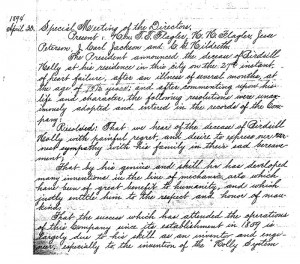 1894
April 30. Special Meeting of the Directors,
Present: Chs. T. T. Flagler, H. H. Flagler, Jesse
Peterson, J. Carl Jackson and C. H. Hildreth.
The President announced the decease of Birdsill
Holly at his residence in this city on the 27th instant,
of heart failure, after an illness of several months, at
the age of years; and after commenting upon his
life and character, the following resolutions were unani-
mously adopted and entered in the records of the Com-
pany:
Resolved: That we hear of the decease of Birdsill
Holly with painful regret, and desire to express our ear-
nest sympathy with his family in their sad bereave-
ment;
That by his genius and skill he has developed
many inventions in the line of mechanic arts which
have been of great benefit to humanity, and which
justly entitle him to the respect and honor of man-
kind;
That the success which has attended the operations
of this Company since its establishment in 1859 is
largely due to his skill as an inventor and engi-
neer, especially to the invention of the "Holly System